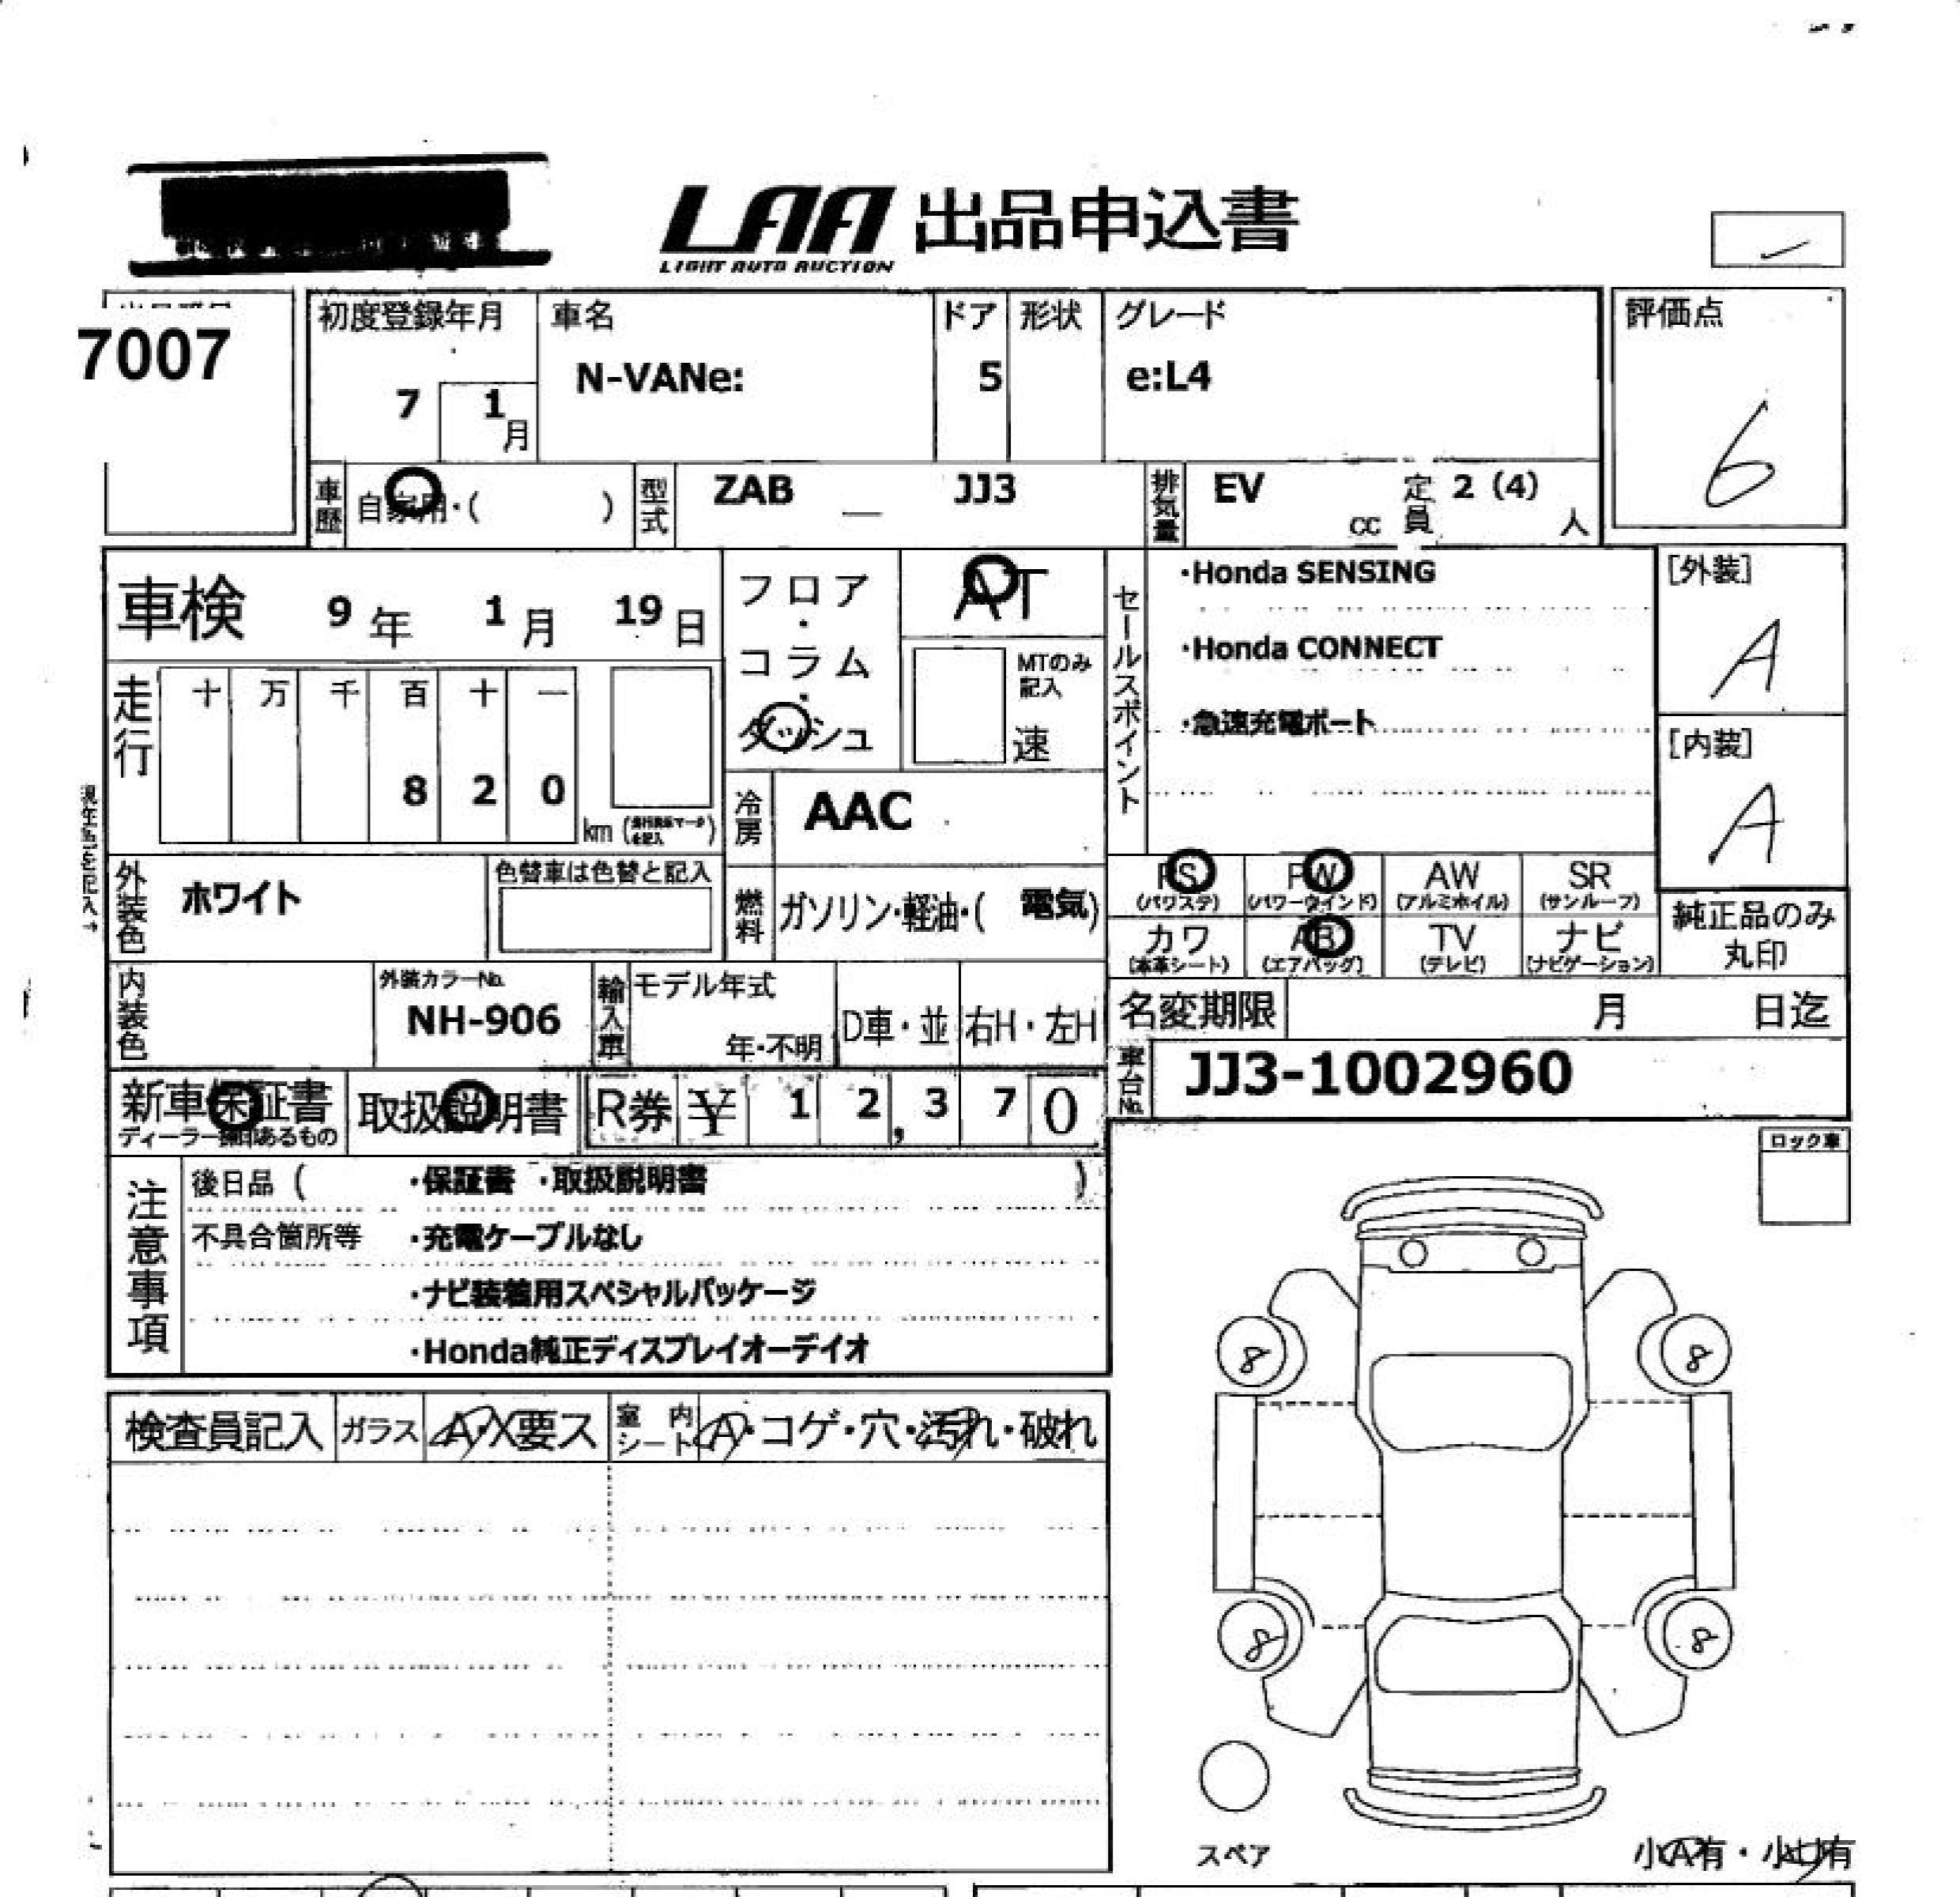 LAA 出品申込書
LIGHT AUTO AUCTION
7007
初度登録年月
7 1月
車名
N-VANe:
ドア
5
形状
グレード
e:L4
評価点
6
車歴
自家用・( )
型式
ZAB — JJ3
排気量
EV cc
定員 2 (4) 人
車検 9年 1月 19日
フロア・コラム・ダッシュ
AT
MTのみ記入
速
セールスポイント
・Honda SENSING
・Honda CONNECT
・急速充電ポート
[外装]
A
[内装]
A
走行
十 万 千 百 十 一
8 2 0 km
冷房
AAC
外装色
ホワイト
色替車は色替と記入
燃料
ガソリン・軽油・( 電気)
PS (パワステ)
PW (パワーウインド)
AW (アルミホイル)
SR (サンルーフ)
カワ (本革シート)
AB (エアバッグ)
TV (テレビ)
ナビ (ナビゲーション)
純正品のみ丸印
内装色
外装カラーNo.
NH-906
輸入車
モデル年式
年・不明
D車・並
右H・左H
名変期限 月 日迄
車台No.
JJ3-1002960
新車保証書
取扱説明書
R券 ¥ 1 2, 3 7 0
注意事項
後日品 ( ・保証書 ・取扱説明書 )
不具合箇所等 ・充電ケーブルなし
・ナビ装着用スペシャルパッケージ
・Honda純正ディスプレイオーデイオ
ロック車
検査員記入
ガラス
A・X要ス
室内シート
A・コゲ・穴・汚れ・破れ
8 8
8 8
スペア
小A有・小U有